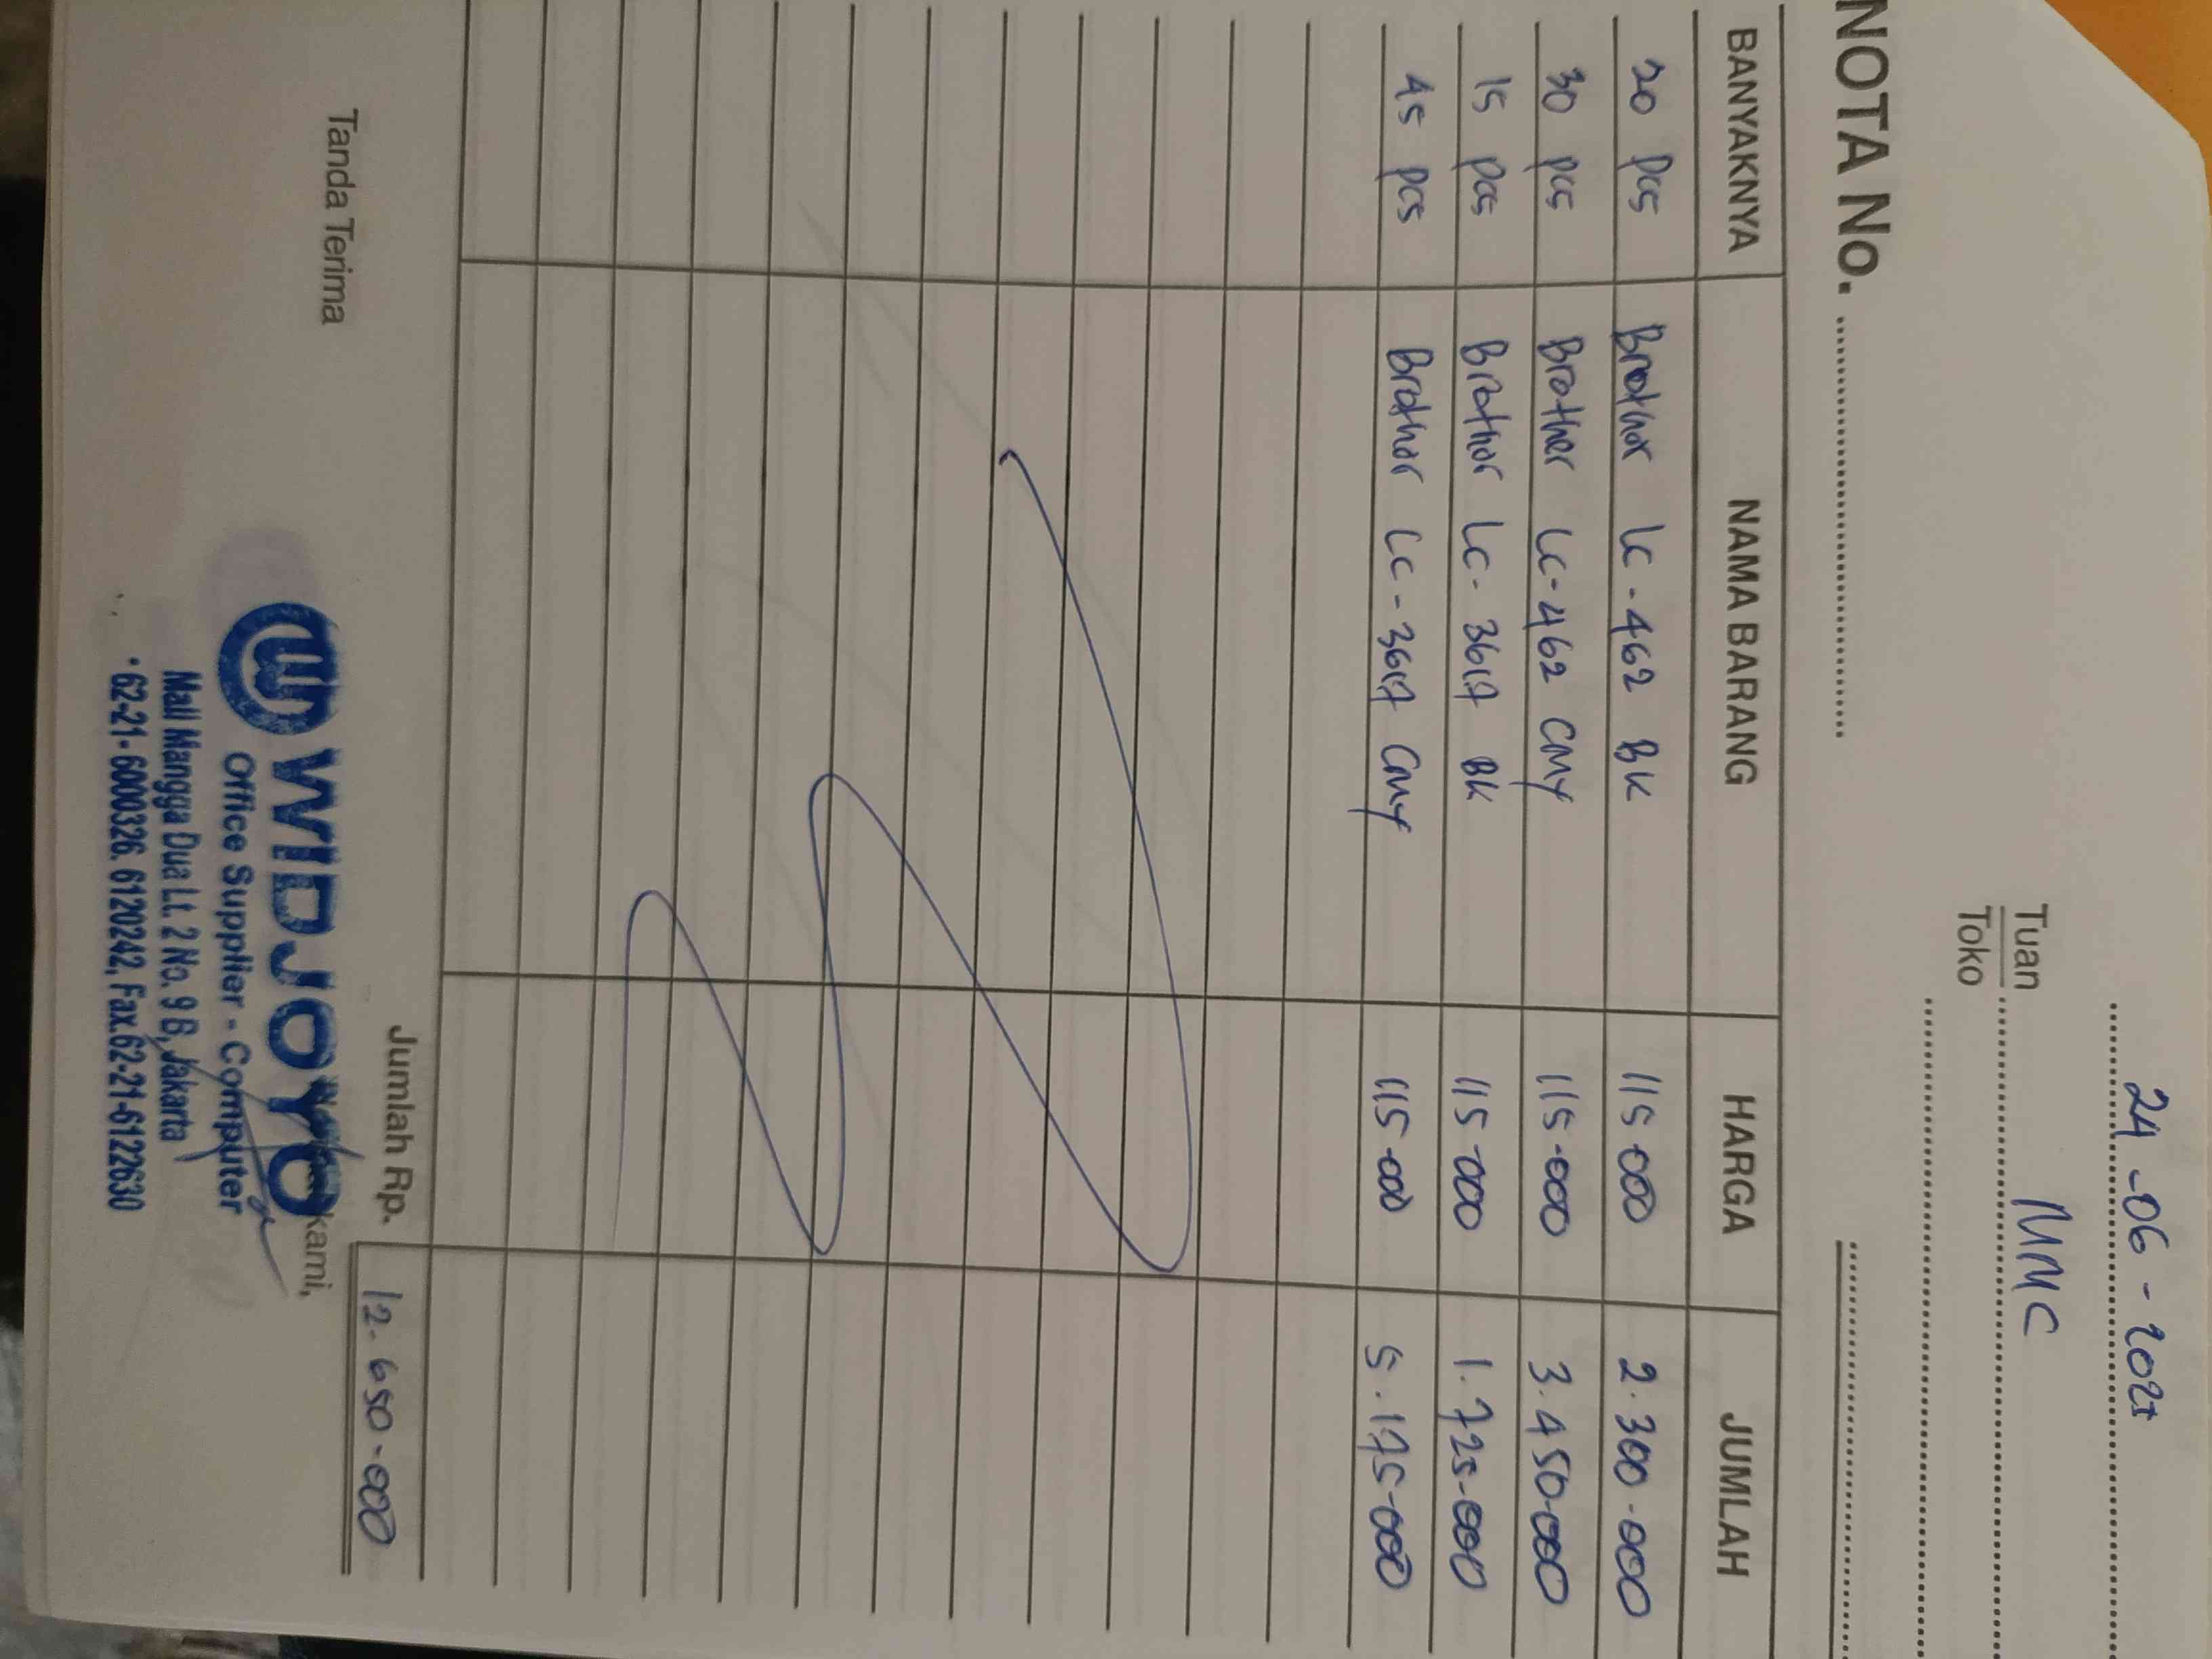 24-06-2025
Tuan MMC
Toko
NOTA No.
BANYAKNYA NAMA BARANG HARGA JUMLAH
20 pcs Brother LC-462 BK 115.000 2.300.000
30 pcs Brother LC-462 CMY 115.000 3.450.000
15 pcs Brother LC-3617 BK 115.000 1.725.000
45 pcs Brother LC-3617 CMY 115.000 5.175.000
Jumlah Rp. 12.650.000
Tanda Terima kami,
WIDJOYO
Office Supplier - Computer
Mall Mangga Dua Lt. 2 No. 9 B, Jakarta
62-21-6000326, 6120242, Fax.62-21-6122630